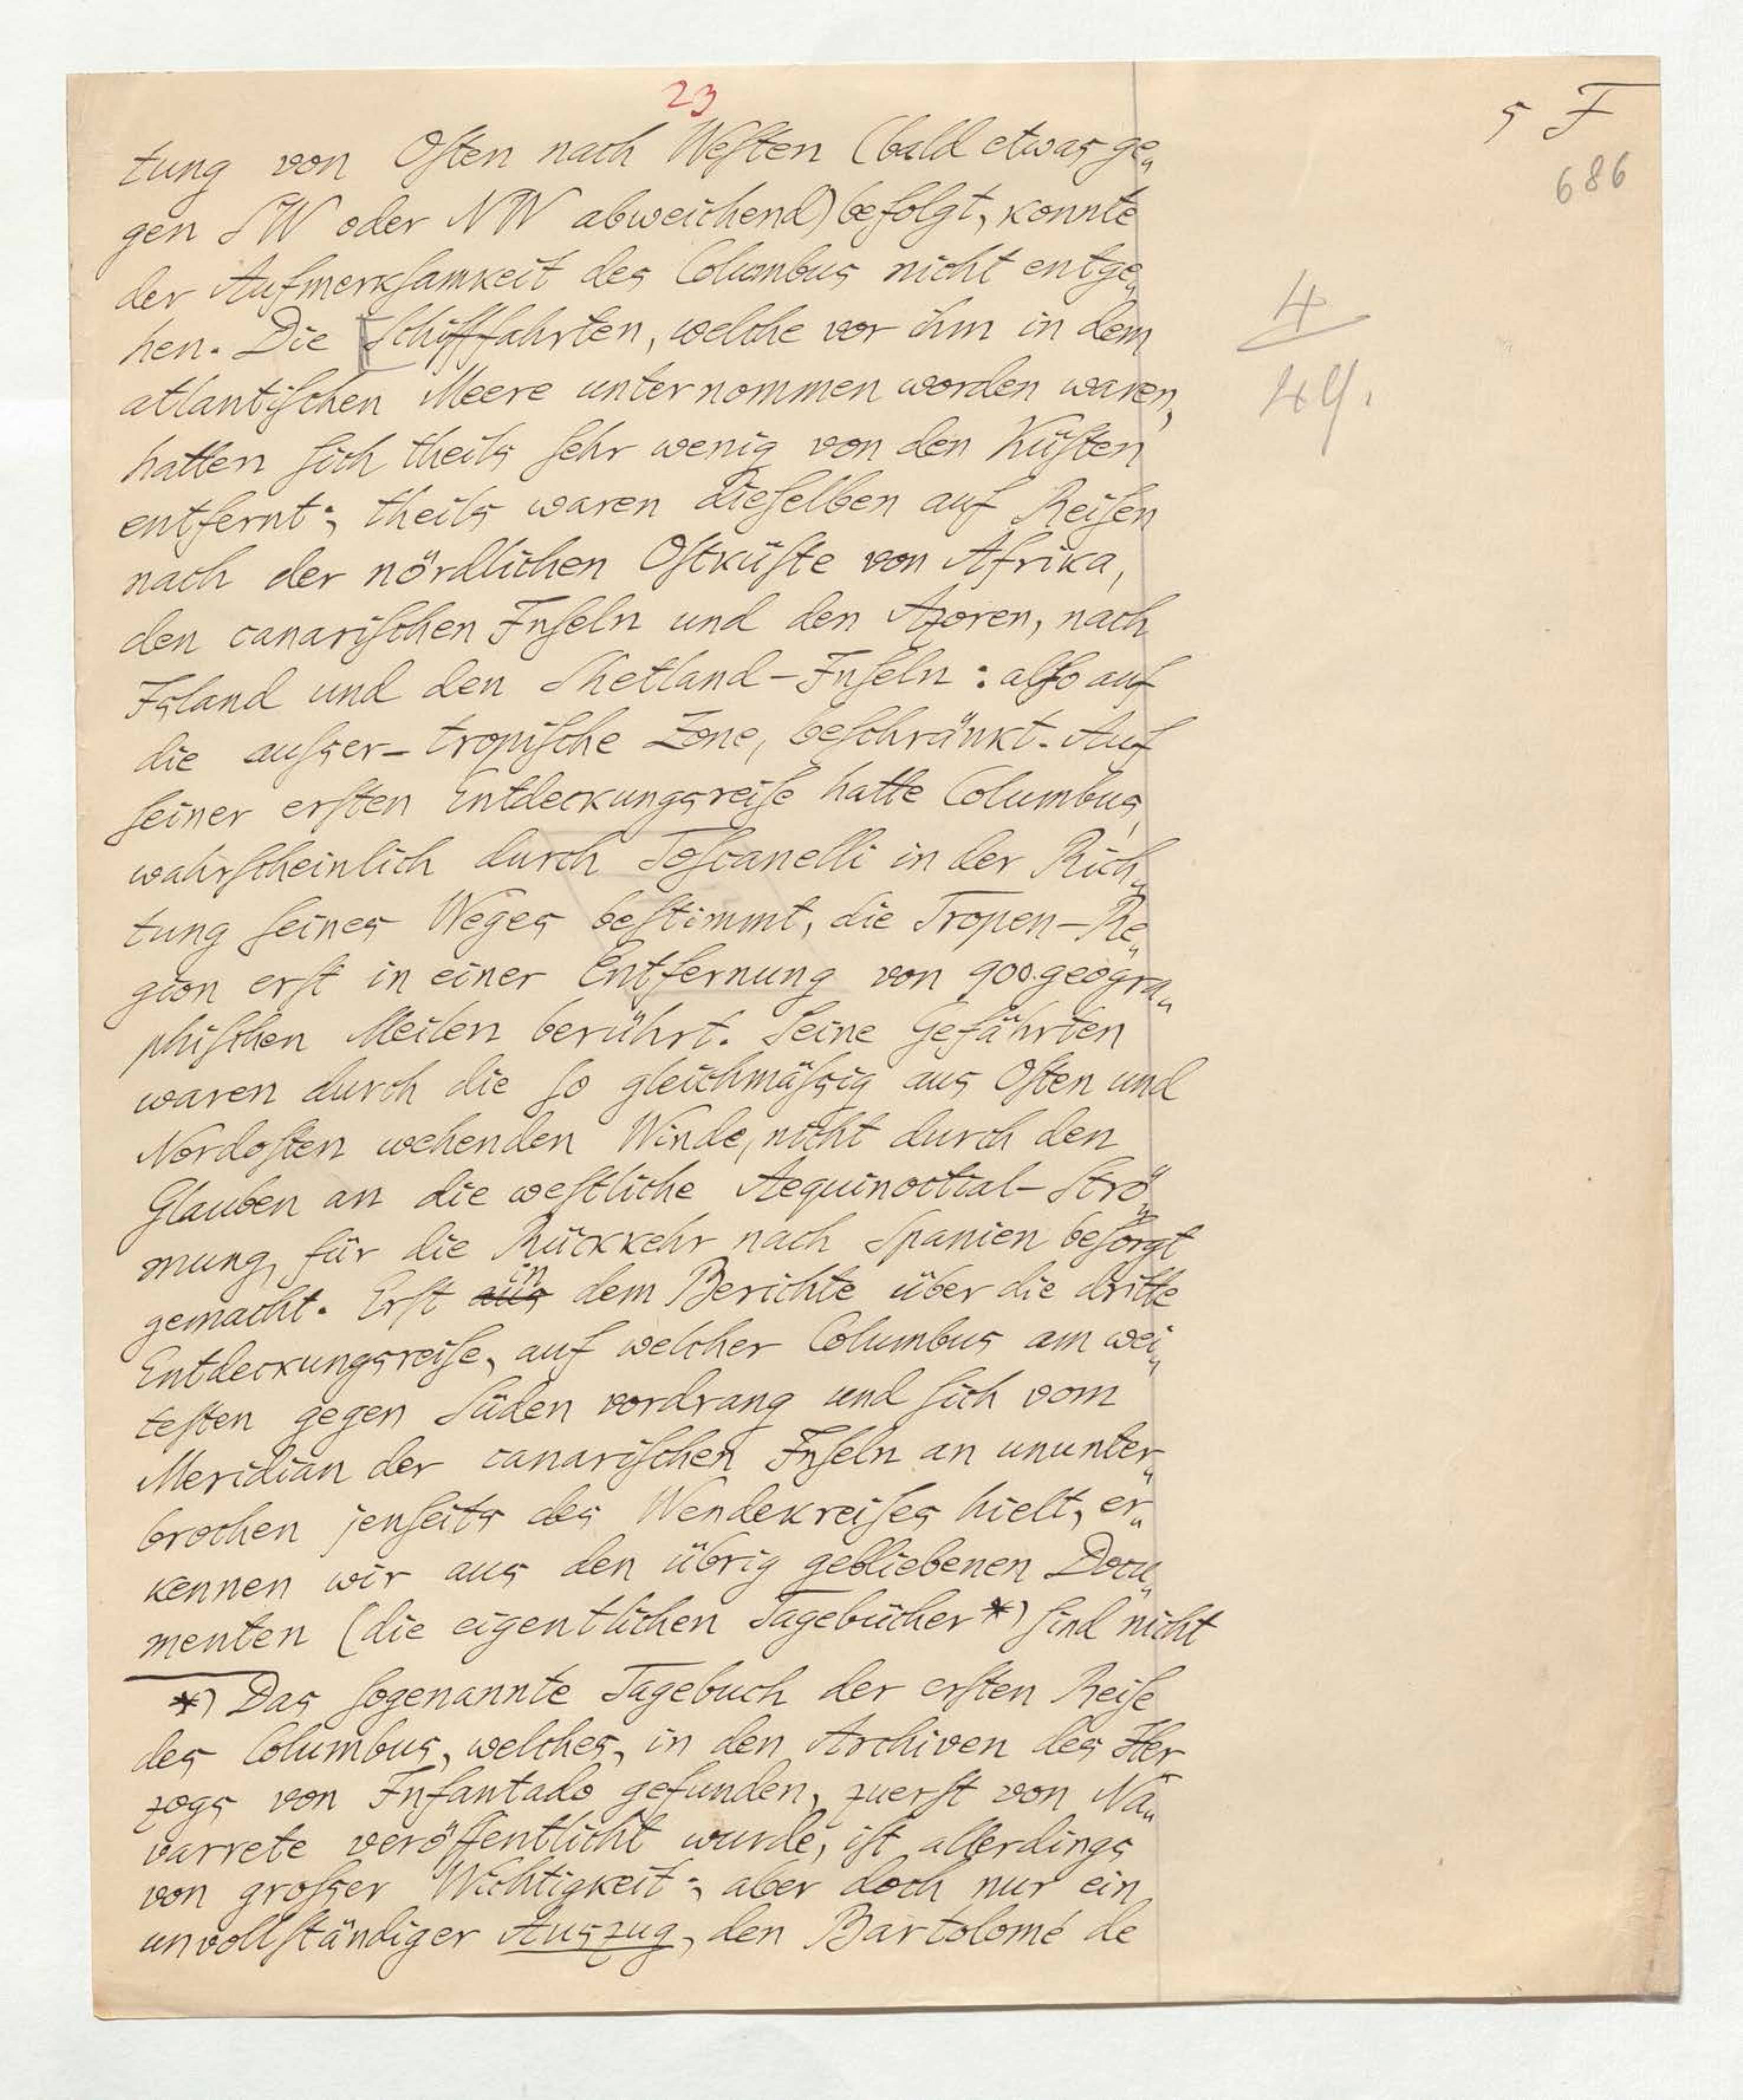 23
5 F
686
tung von Osten nach Westen (bald etwas ge„
gen SW oder NW abweichend) befolgt, konnte
der Aufmerksamkeit des Columbus nicht entge„
hen. Die Schifffahrten, welche vor ihm in dem
4
atlantischen Meere unternommen worden waren,
44.
hatten sich theils sehr wenig von den Küsten
entfernt; theils waren dieselben auf Reisen
nach der nördlichen Ostküste von Afrika,
den canarischen Inseln und den Azoren, nach
Island und den Shetland-Inseln: also auf
die ausser-tropische Zone, beschränkt. Auf
seiner ersten Entdeckungsreise hatte Columbus,
wahrscheinlich durch Toscanelli in der Rich„
tung seines Weges bestimmt, die Tropen-Re„
gion erst in einer Entfernung von 900 geogra„
phischen Meilen berührt. Seine Gefährten
waren durch die so gleichmässig aus Osten und
Nordosten wehenden Winde, nicht durch den
Glauben an die westliche Aequinoctial-Strö„
mung, für die Rückkehr nach Spanien besorgt
gemacht. Erst aus in dem Berichte über die dritte
Entdeckungsreise, auf welcher Columbus am wei„
testen gegen Süden vordrang und sich vom
Meridian der canarischen Inseln an ununter„
brochen jenseits des Wendekreises hielt, er„
kennen wir aus den übrig gebliebenen Docu„
menten (die eigentlichen Tagebücher*) sind nicht
*) Das sogenannte Tagebuch der ersten Reise
des Columbus, welches, in den Archiven des Her„
zogs von Infantado gefunden, zuerst von Na„
varrete veröffentlicht wurde, ist allerdings
von grosser Wichtigkeit; aber doch nur ein
unvollständiger Auszug, den Bartolomé de